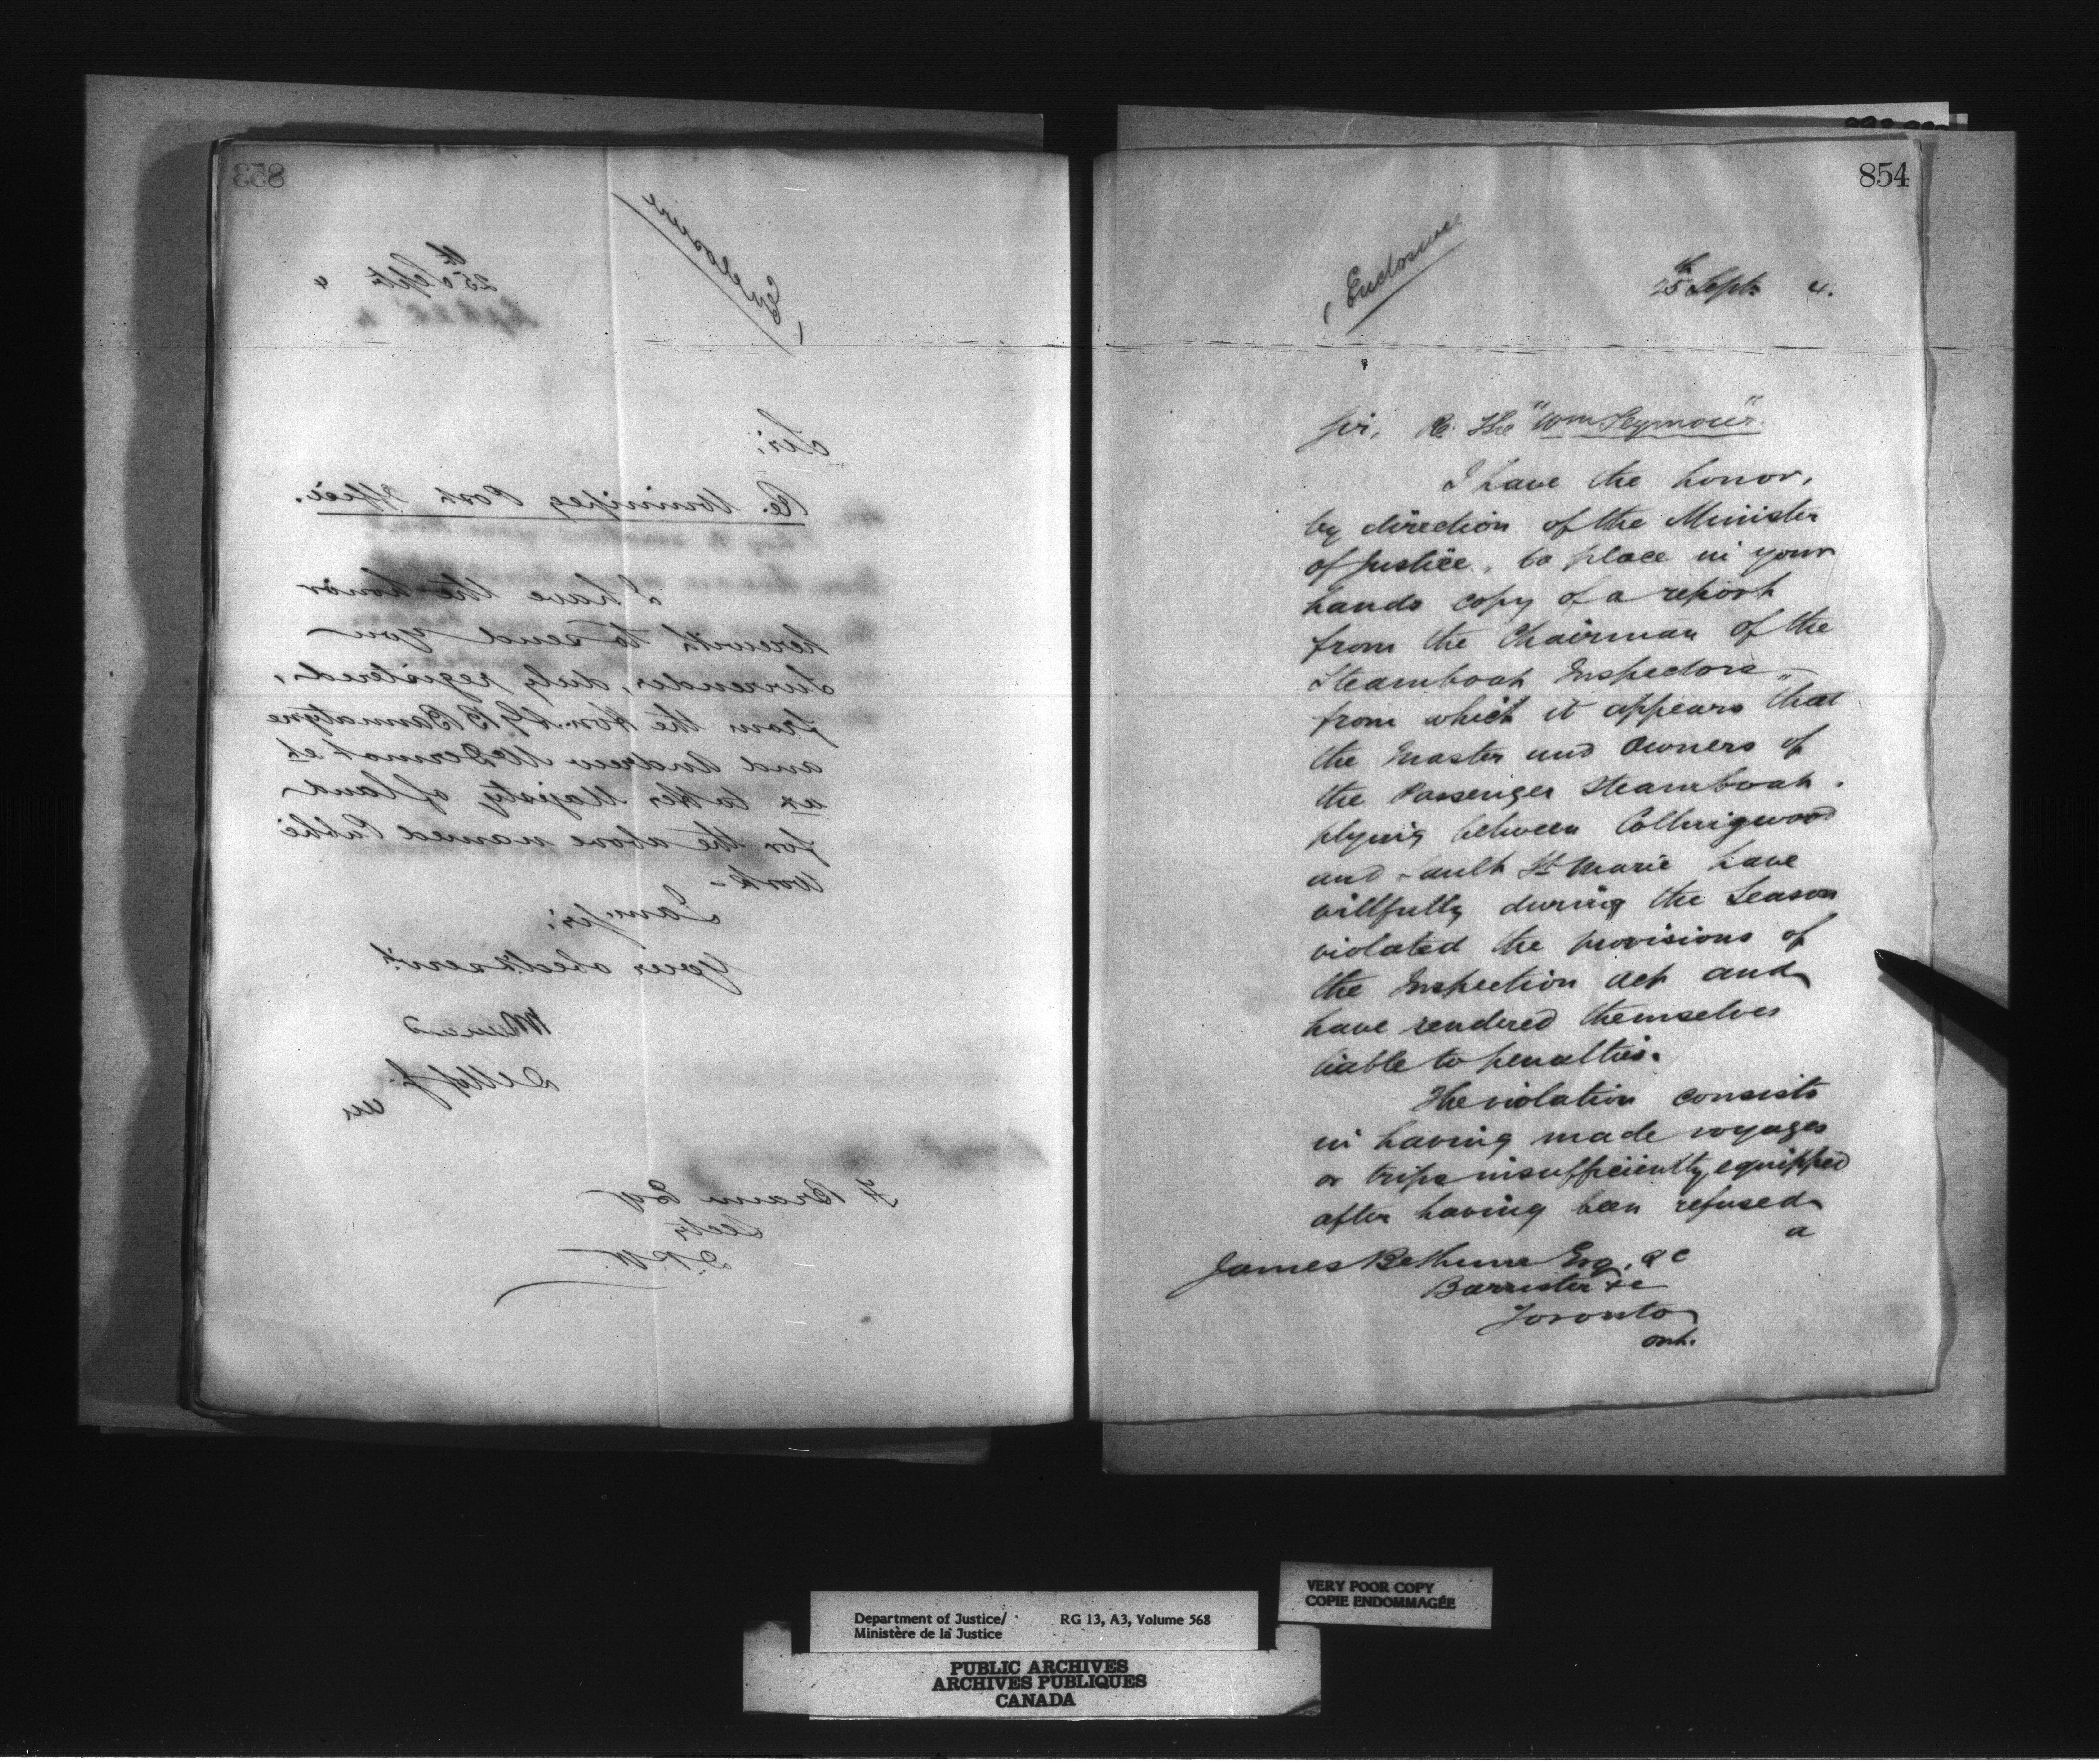 853
Enclosure
25th Sept 4
Sir;
Re. Winnipeg Post Office.
I have the honor
herewith to send you
Surrender, duly registered,
from the Hon. A. G. B. Bannatyne
and Andrew McDermot et
ux to Her Majesty of land
for the above named Public
Work-
I am, Sir,
Your obedt. servt.
F Braun Esq
Secty
D.P.W.
854
Enclosure
25th Sept. 4.
Sir, Re. The "Wm Seymour".
I have the honor,
by direction of the Minister
of Justice, to place in your
hands copy of a report
from the Chairman of the
Steamboat Inspectors
from which it appears that
the Master and Owners of
the Passenger Steamboat
plying between Collingwood
and Sault St Marie have
willfully during the Season
violated the provisions of
the Inspection Act and
have rendered themselves
liable to penalties.
The violation consists
in having made voyages
or trips insufficiently equipped
after having been refused
a
James Bethune Esq. Q C
Barrister &c
Toronto
Ont.
VERY POOR COPY
COPIE ENDOMMAGÉE
Department of Justice/ RG 13, A3, Volume 568
Ministère de la Justice
PUBLIC ARCHIVES
ARCHIVES PUBLIQUES
CANADA